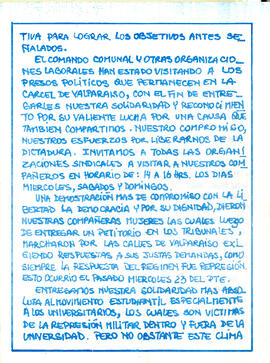 TIVA PARA LOGRAR LOS OBJETIVOS ANTES SE
ÑALADOS.
EL COMANDO COMUNAL Y OTRAS ORGANIZACIO_
NES LABORALES HAN ESTADO VISITANDO A LOS
PRESOS POLITICOS QUE PERMANECEN EN LA
CARCEL DE VALPARAISO, CON EL FIN DE ENTRE_
GARLES NUESTRA SOLIDARIDAD Y RECONOCIMIEN
TO POR SU VALIENTE LUCHA POR UNA CAUSA QUE
TAMBIEN COMPARTIMOS. NUESTRO COMPROMISO,
NUESTROS ESFUERZOS POR LIBERARNOS DE LA
DICTADURA. INVITAMOS A TODAS LAS ORGANI
ZACIONES SINDICALES A VISITAR A NUESTROS COM
PAÑEROS EN HORARIO DE: 14 A 16 HRS. LOS DIAS
MIERCOLES, SABADOS Y DOMINGOS.
UNA DEMOSTRACION MAS DE COMPROMISO CON LA LI
BERTAD LA DEMOCRACIA Y POR SU DIGNIDAD, DIERON
NUESTRAS COMPAÑERAS MUJERES LAS CUALES LUEGO
DE ENTREGAR UN PETITORIO EN LOS TRIBUNALES,
MARCHARON POR LAS CALLES DE VALPARAISO EXI_
GIENDO RESPUESTAS A SUS JUSTAS DEMANDAS, COMO
SIEMPRE LA RESPUESTA DEL REGIMEN FUE REPRESIÓN
ESTO OCURRIO EL PASADO MIERCOLES 23 DEL PTE.
ENTREGAMOS NUESTRA SOLIDARIDAD MAS ABSO_
LUTA AL MOVIMIENTO ESTUDIANTIL ESPECIALMENTE
A LOS UNIVERSITARIOS, LOS CUALES SON VICTIMAS
DE LA REPRESIÓN MILITAR DENTRO Y FUERA DE LA
UNIVERSIDAD. PERO NO OBSTANTE ESTE CLIMA